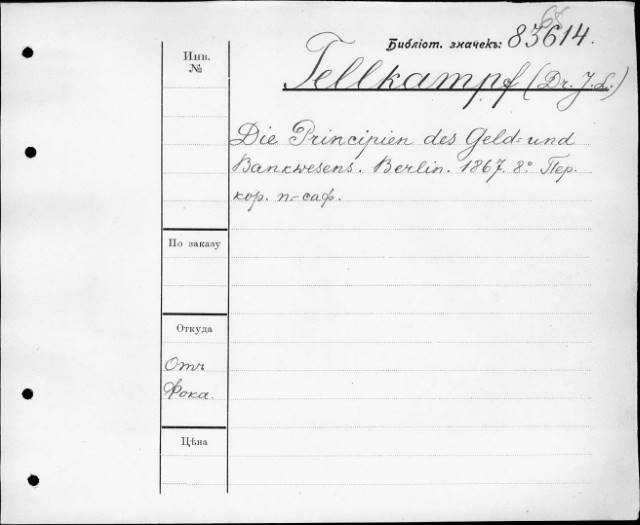 68
Библіот. значекъ: 83614.
Инв.
№
Tellkampf (Dr. J. L.)
Die Principien des Geld- und
Bankwesens. Berlin. 1867. 8° Пер.
кор. п-саф.
По заказу
Откуда
Отъ
Фока.
Цѣна